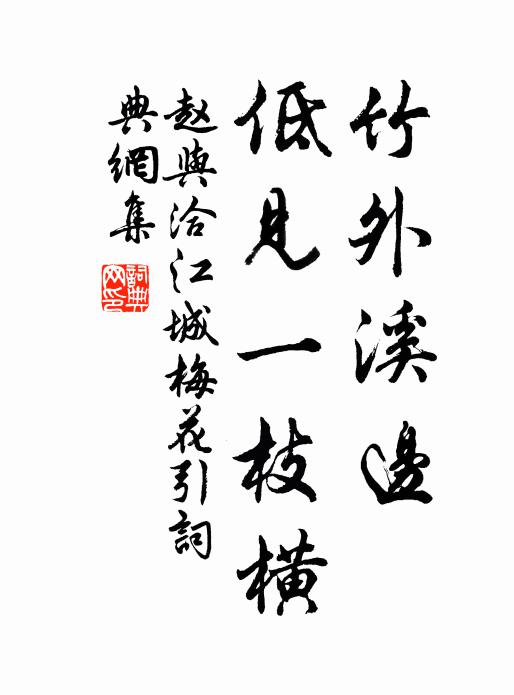 竹外溪邊
低見一枝橫
赵與洽江城梅花引詞
典網集
詞典网印